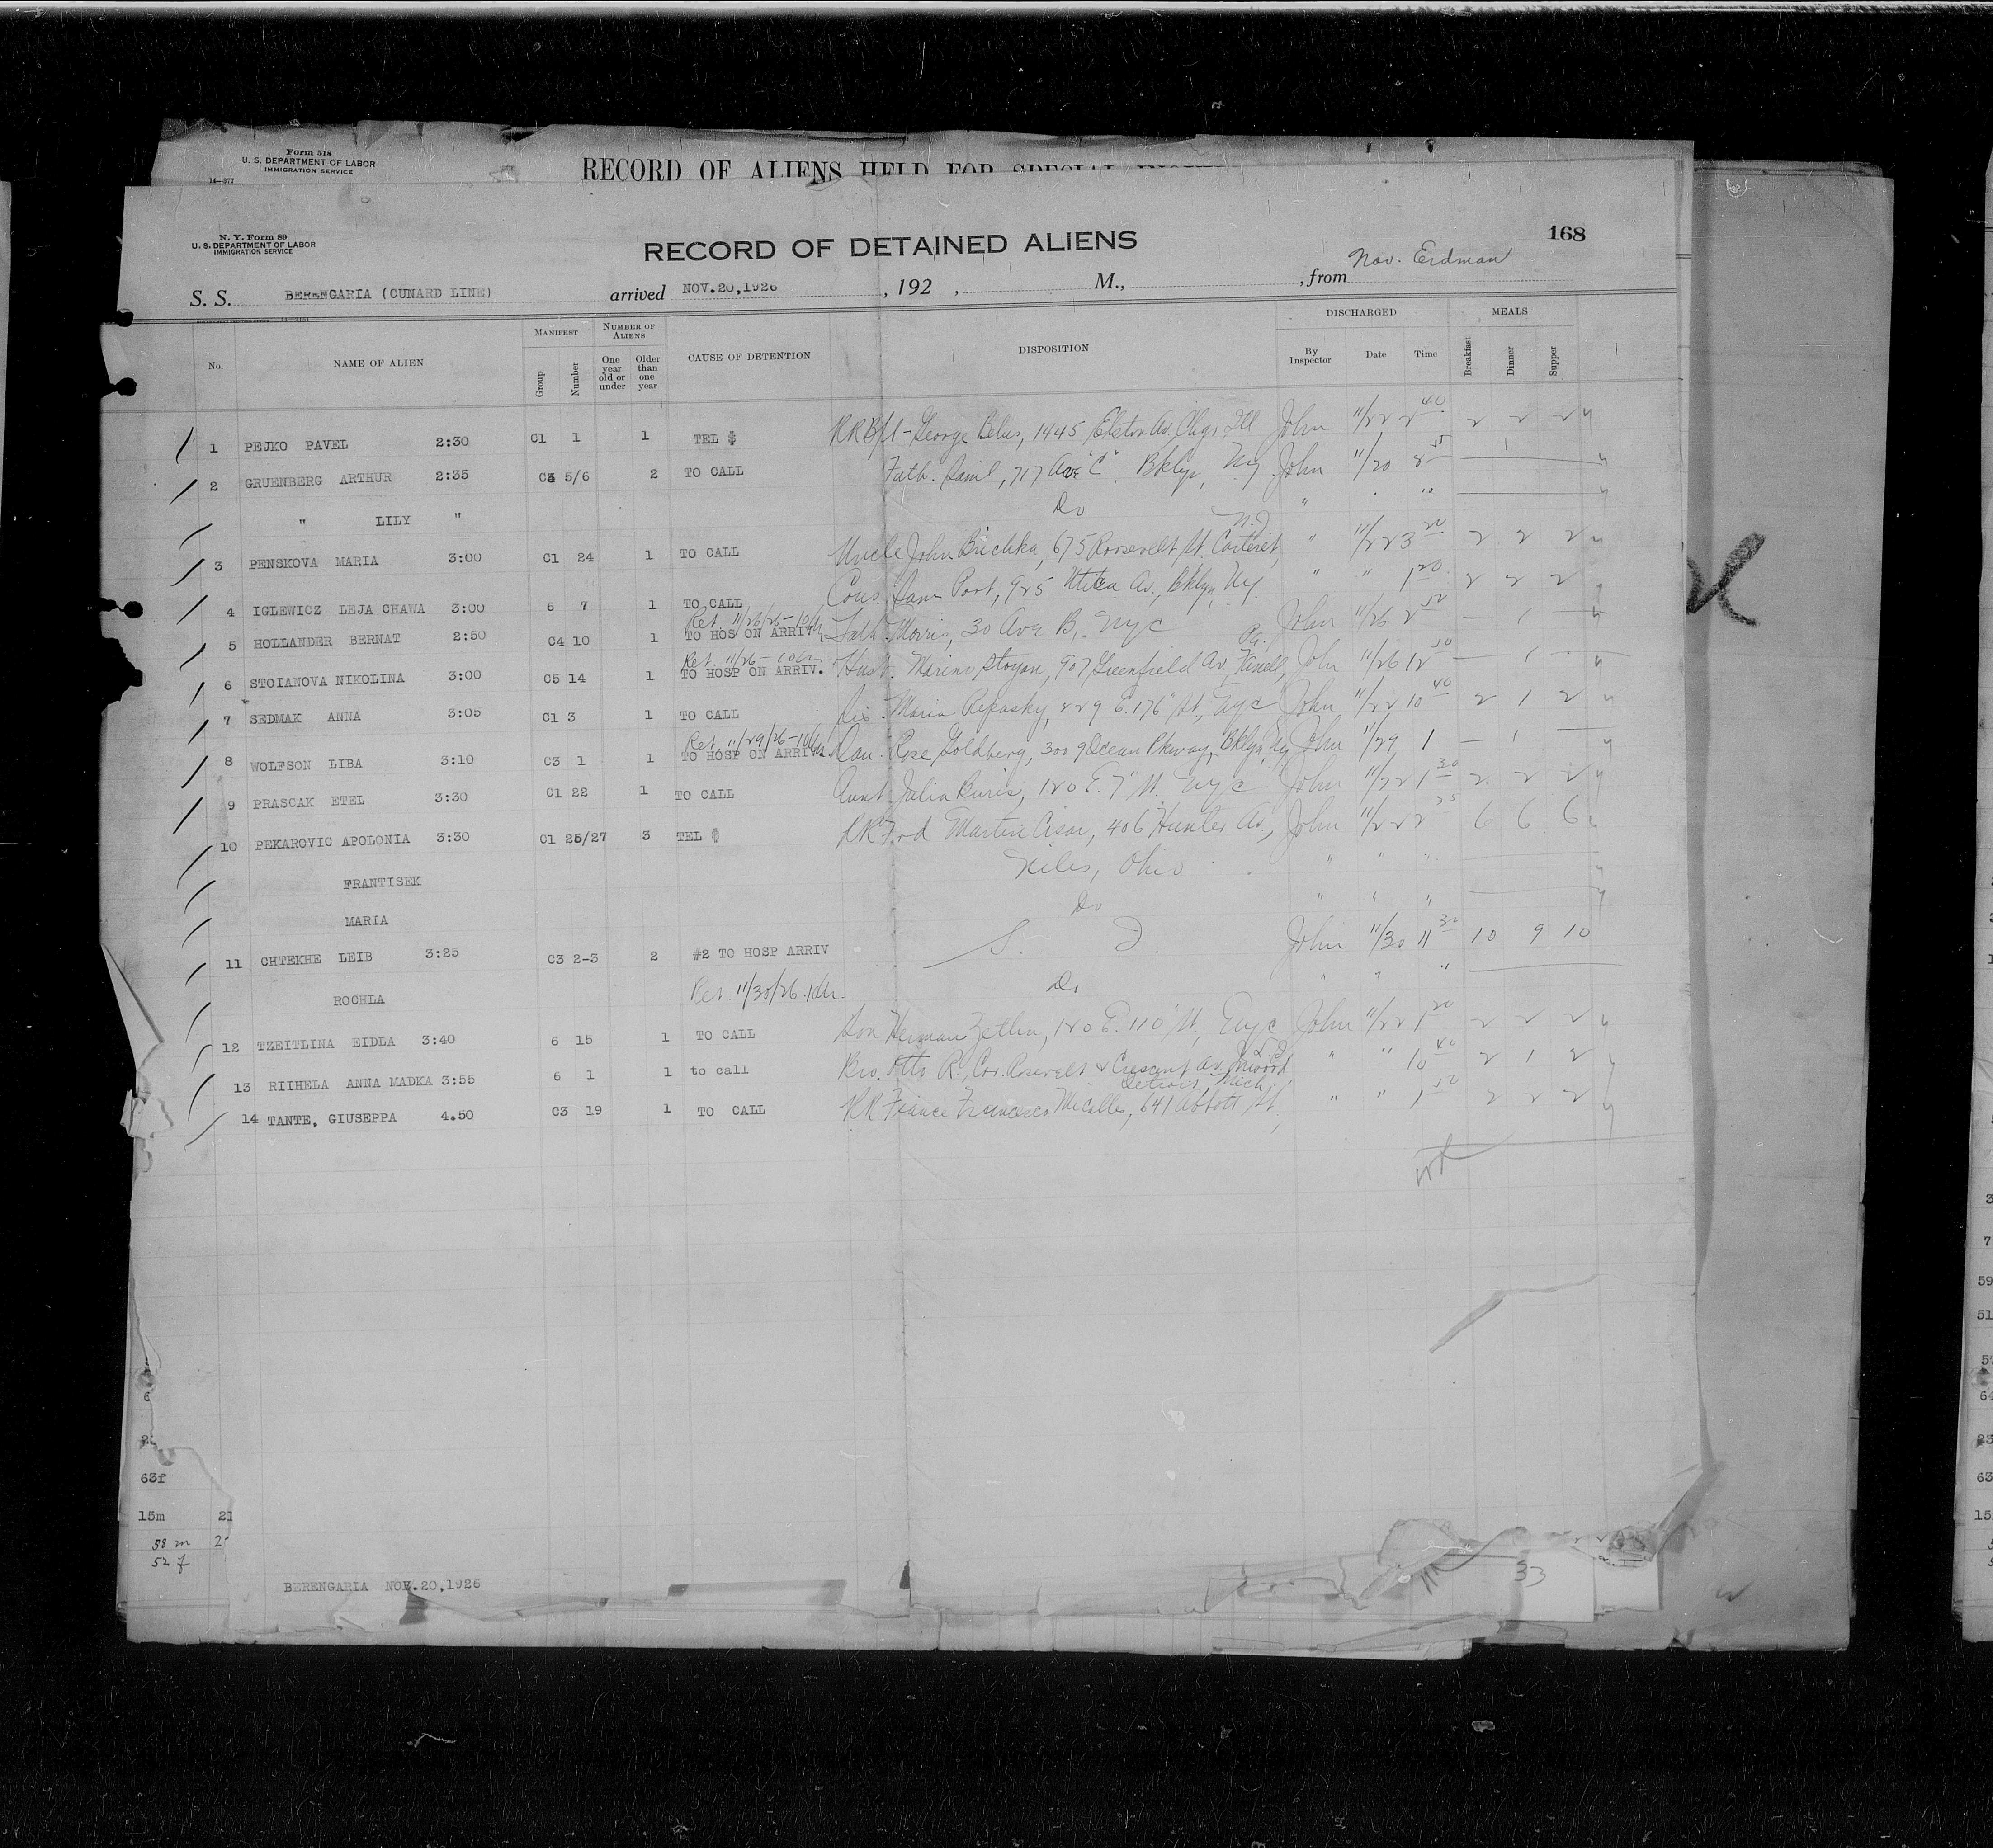 Form 518
U. S. DEPARTMENT OF LABOR
IMMIGRATION SERVICE
14—377
RECORD OF ALIENS HELD FOR SPECIAL
N. Y. Form 89
U. S. DEPARTMENT OF LABOR
IMMIGRATION SERVICE
RECORD OF DETAINED ALIENS
168
S. S. BERENGARIA (CUNARD LINE) arrived NOV.20,1926 , 192 , M., , from Nov. Erdman
No. NAME OF ALIEN MANIFEST Group Number NUMBER OF ALIENS One year old or under Older than one year CAUSE OF DETENTION DISPOSITION DISCHARGED By Inspector Date Time MEALS Breakfast Dinner Supper
1 PEJKO PAVEL 2:30 C1 1 1 TEL $ George Belus, 1445 Elston Av. Chgo Ill John 11/22 2 40 2 2 2
2 GRUENBERG ARTHUR 2:35 C3 5/6 2 TO CALL Fath. Saml, 717 Ave "C" Bklyn, NY John 11/20
" LILY " Do "
3 PENSKOVA MARIA 3:00 C1 24 1 TO CALL Uncle John Brichka, 675 Roosevelt St. Carteret, N.J " 11/22 3 20 2 2 2
4 IGLEWICZ LEJA CHAWA 3:00 6 7 1 TO CALL Cous. Sam Port, 925 Utica Av., Bklyn, NY. " " 1 20 2 2 2
5 HOLLANDER BERNAT 2:50 C4 10 1 Ret. 11/26/26 TO HOS ON ARRIV. Fath. Morris, 30 Ave B, NYC John 11/26 2 50 — 1 —
6 STOIANOVA NIKOLINA 3:00 C5 14 1 Ret. 11/26 TO HOSP ON ARRIV. Husb. Marino Stoyan, 907 Greenfield Av, Pa. John 11/26 12 50 — 1 —
7 SEDMAK ANNA 3:05 C1 3 1 TO CALL Sis. Maria Repasky, 229 E. 176" St, NYC John 11/22 10 40 2 1 2
8 WOLFSON LIBA 3:10 C3 1 1 Ret. 11/29/26 TO HOSP ON ARRIV. Dau. Rose Goldberg, 3009 Ocean Pkway, Bklyn, NY John 11/29 1 — 1 —
9 PRASCAK ETEL 3:30 C1 22 1 TO CALL Aunt Julia Buris, 120 E. 7" St. NYC John 11/22 1 30 2 2 2
10 PEKAROVIC APOLONIA 3:30 C1 25/27 3 TEL $ Martin Cisar, 406 Hunter Av., John 11/22 2 35 6 6 6
FRANTISEK Niles, Ohio " " "
MARIA Do " " "
11 CHTEKHE LEIB 3:25 C3 2-3 2 #2 TO HOSP ARRIV S. I. John 11/30 11 30 10 9 10
ROCHLA Ret. 11/30/26 Do " " "
12 TZEITLINA EIDLA 3:40 6 15 1 TO CALL Son Herman Zetlin, 120 E. 110" St, NYC John 11/22 1 20 2 2 2
13 RIIHELA ANNA MADKA 3:55 6 1 1 to call Bro. Otto R., Cor. Rosevelt & Crescent Av. Inwood L.I. " " 10 40 2 1 2
14 TANTE, GIUSEPPA 4.50 C3 19 1 TO CALL RR Fiance Francesco Micalles, 641 Abbott St, Detroit, Mich. " " 1 50 2 2 2
63f
15m 21
58 m 2
52 f
33
BERENGARIA NOV.20,1926